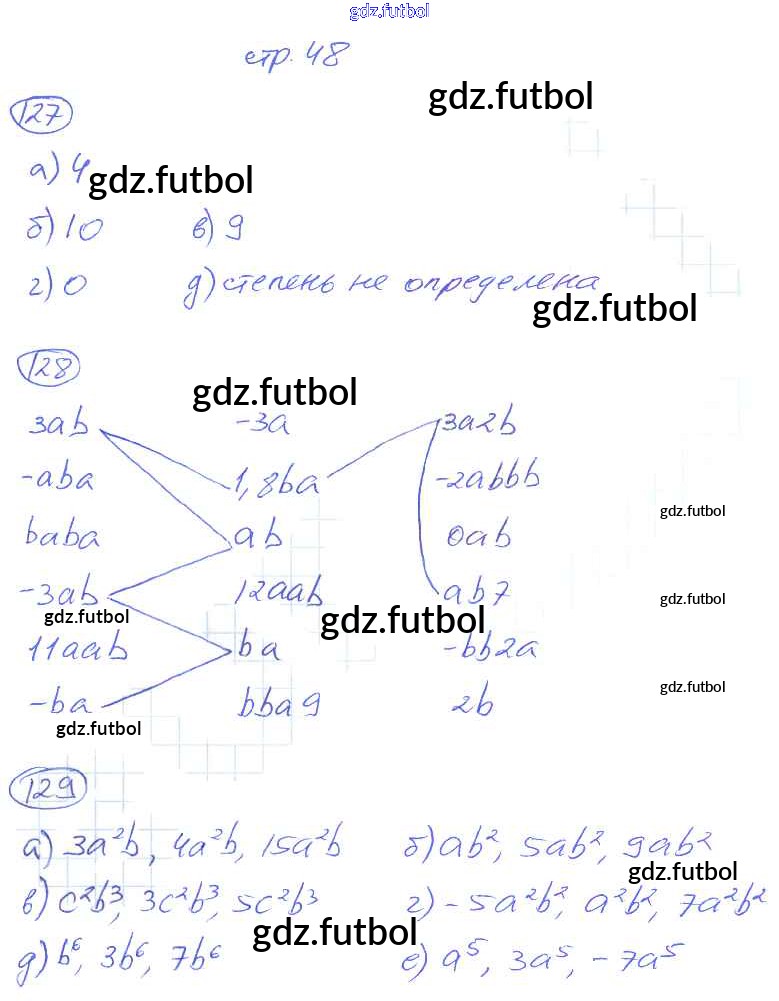 gdz.futbol
стр. 48
gdz.futbol
127
а) 4 gdz.futbol
б) 10 в) 9
г) 0 д) степень не определена
gdz.futbol
128
gdz.futbol
3ab -3a 3a2b
-aba 1,8ba -2abbb
gdz.futbol
baba ab 0ab
-3ab 12aab ab7
gdz.futbol
gdz.futbol gdz.futbol
11aab ba -bb2a
gdz.futbol
-ba bba9 2b
gdz.futbol
129
а) 3a²b, 4a²b, 15a²b б) ab², 5ab², 9ab²
gdz.futbol
в) c²b³, 3c²b³, 5c²b³ г) -5a²b², a²b², 7a²b²
gdz.futbol
д) b⁶, 3b⁶, 7b⁶ е) a⁵, 3a⁵, -7a⁵